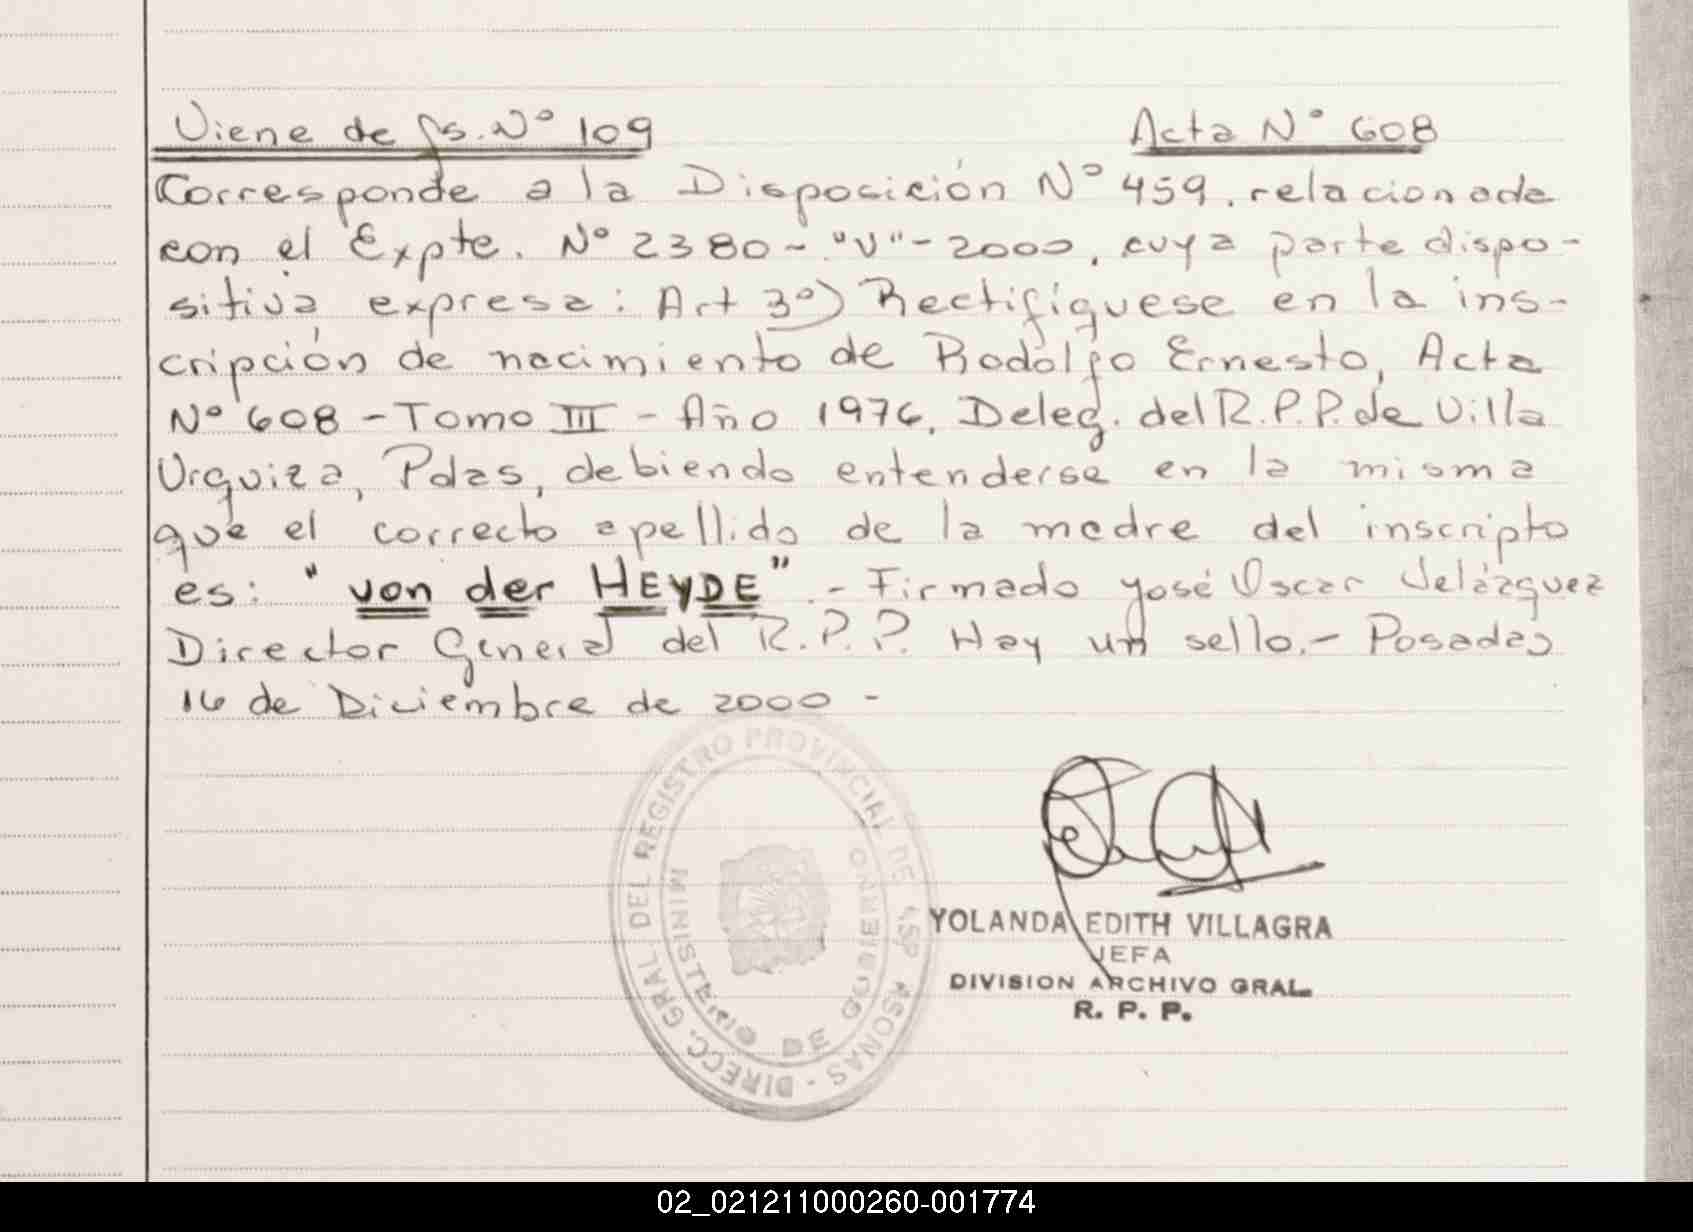 Viene de fs. Nº 109 Acta Nº 608
Corresponde a la Disposición Nº 459. relacionada
con el Expte. Nº 2380-"V"-2000, cuya parte dispo-
sitiva expresa: Art 3º) Rectifíquese en la ins-
cripción de nacimiento de Rodolfo Ernesto, Acta
Nº 608 - Tomo III - Año 1976, Deleg. del R.P.P. de Villa
Urquiza, Pdas, debiendo entenderse en la misma
que el correcto apellido de la madre del inscripto
es: "von der HEYDE".- Firmado José Oscar Velázquez
Director General del R.P.P. Hay un sello.- Posadas
16 de Diciembre de 2000 -
DIRECC. GRAL DEL REGISTRO PROVINCIAL DE
MINISTERIO DE GOBIERNO
YOLANDA EDITH VILLAGRA
JEFA
DIVISION ARCHIVO GRAL.
R. P. P.
02_021211000260-001774